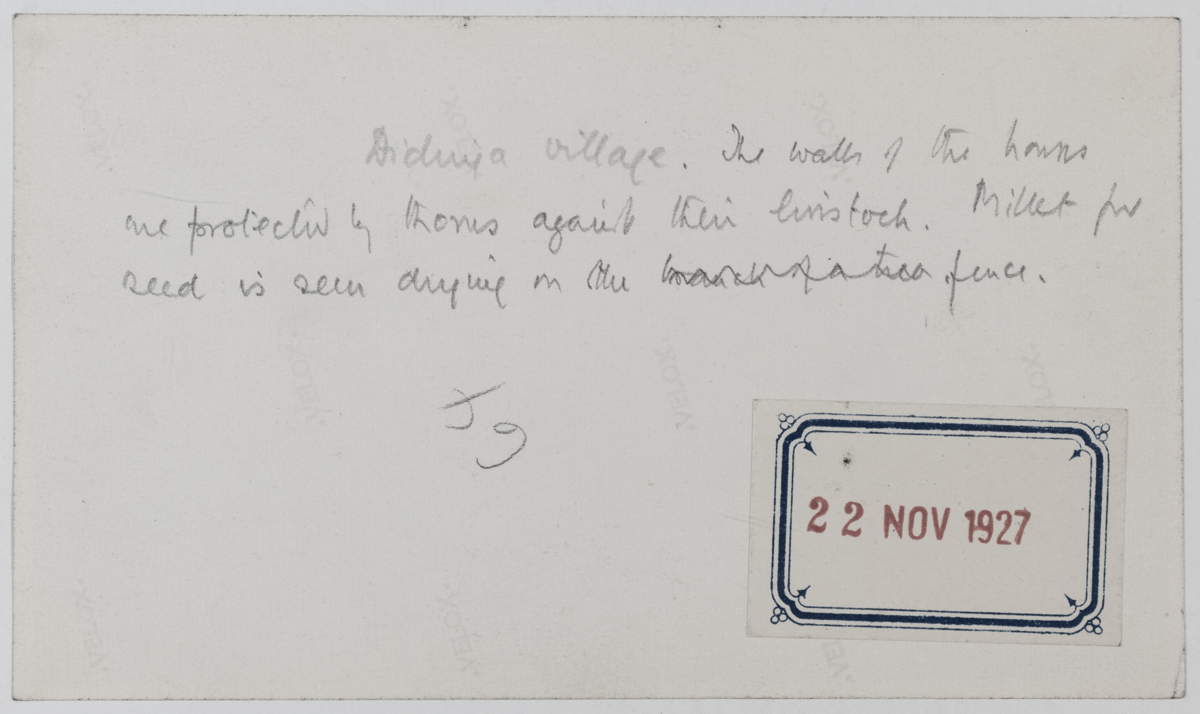 Didinga village. The walls of the houses
are protected by thorns against their livestock. Millet for
seed is seen drying on the branch of a tree fence.
J9
22 NOV 1927
VELOX
VELOX
VELOX
VELOX
VELOX
VELOX
VELOX
VELOX